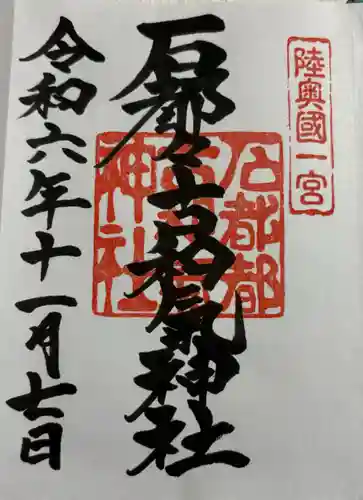 陸奥國一宮
石都々古和氣神社
石都都
神社
令和六年十一月七日